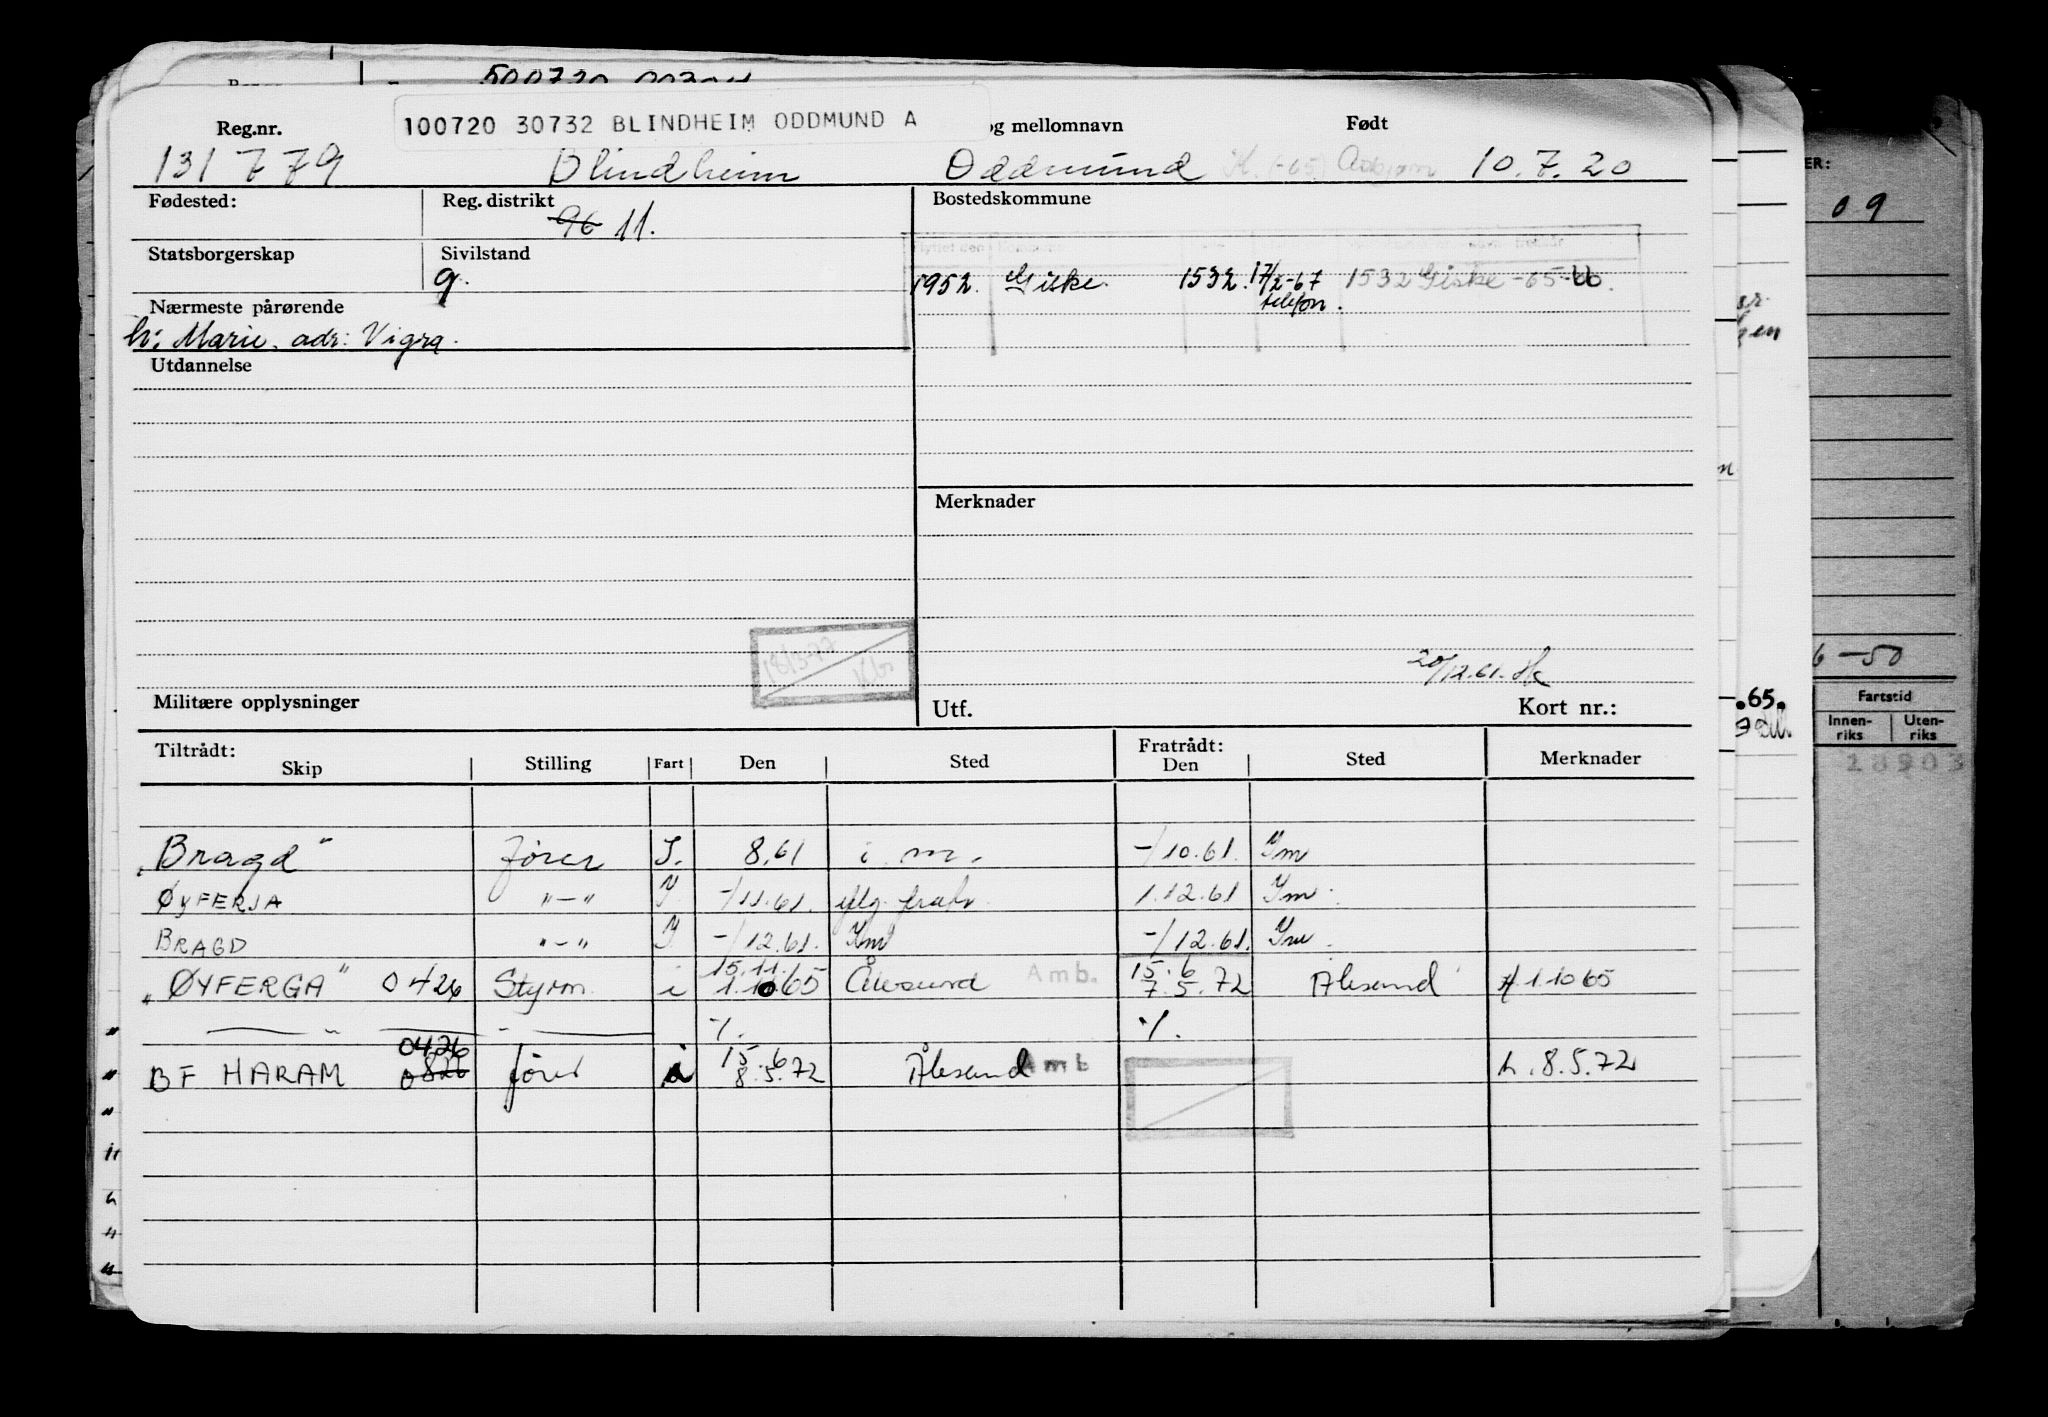 100720 30732 BLINDHEIM ODDMUND A
Reg.nr. og mellomnavn Født
131 779 Blindheim Oddmund Asbjørn 10.7.20
Fødested: Reg. distrikt Bostedskommune
96 11.
Statsborgerskap Sivilstand
g. 1952. Giske. 1532. 17/2-67 1532 Giske -65-
telefon.
Nærmeste pårørende
h: Marie, adr: Vigra.
Utdannelse
Merknader
20/12.61.
Militære opplysninger Utf. Kort nr.:
Tiltrådt: Fratrådt:
Skip Stilling Fart Den Sted Den Sted Merknader
"Bragd" fører I. 8.61 i. m. -/10.61. Im
ØYFERJA "-" I -/11.61. 1.12.61 Im.
BRAGD "-" I -/12.61. Im -/12.61. Im.
15.11. 15.6
"ØYFERGA" 0426 Styrm. i 1.10.65 Ålesund Amb. 7.5.72 Ålesund 1.10 65
-"- - ./. ./.
0426 15.6
BF HARAM 0826 fører i 8.5.72 Ålesund Amb L. 8.5.72
09
6-50
.65.
Fartstid
Innen-riks Uten-riks
28903